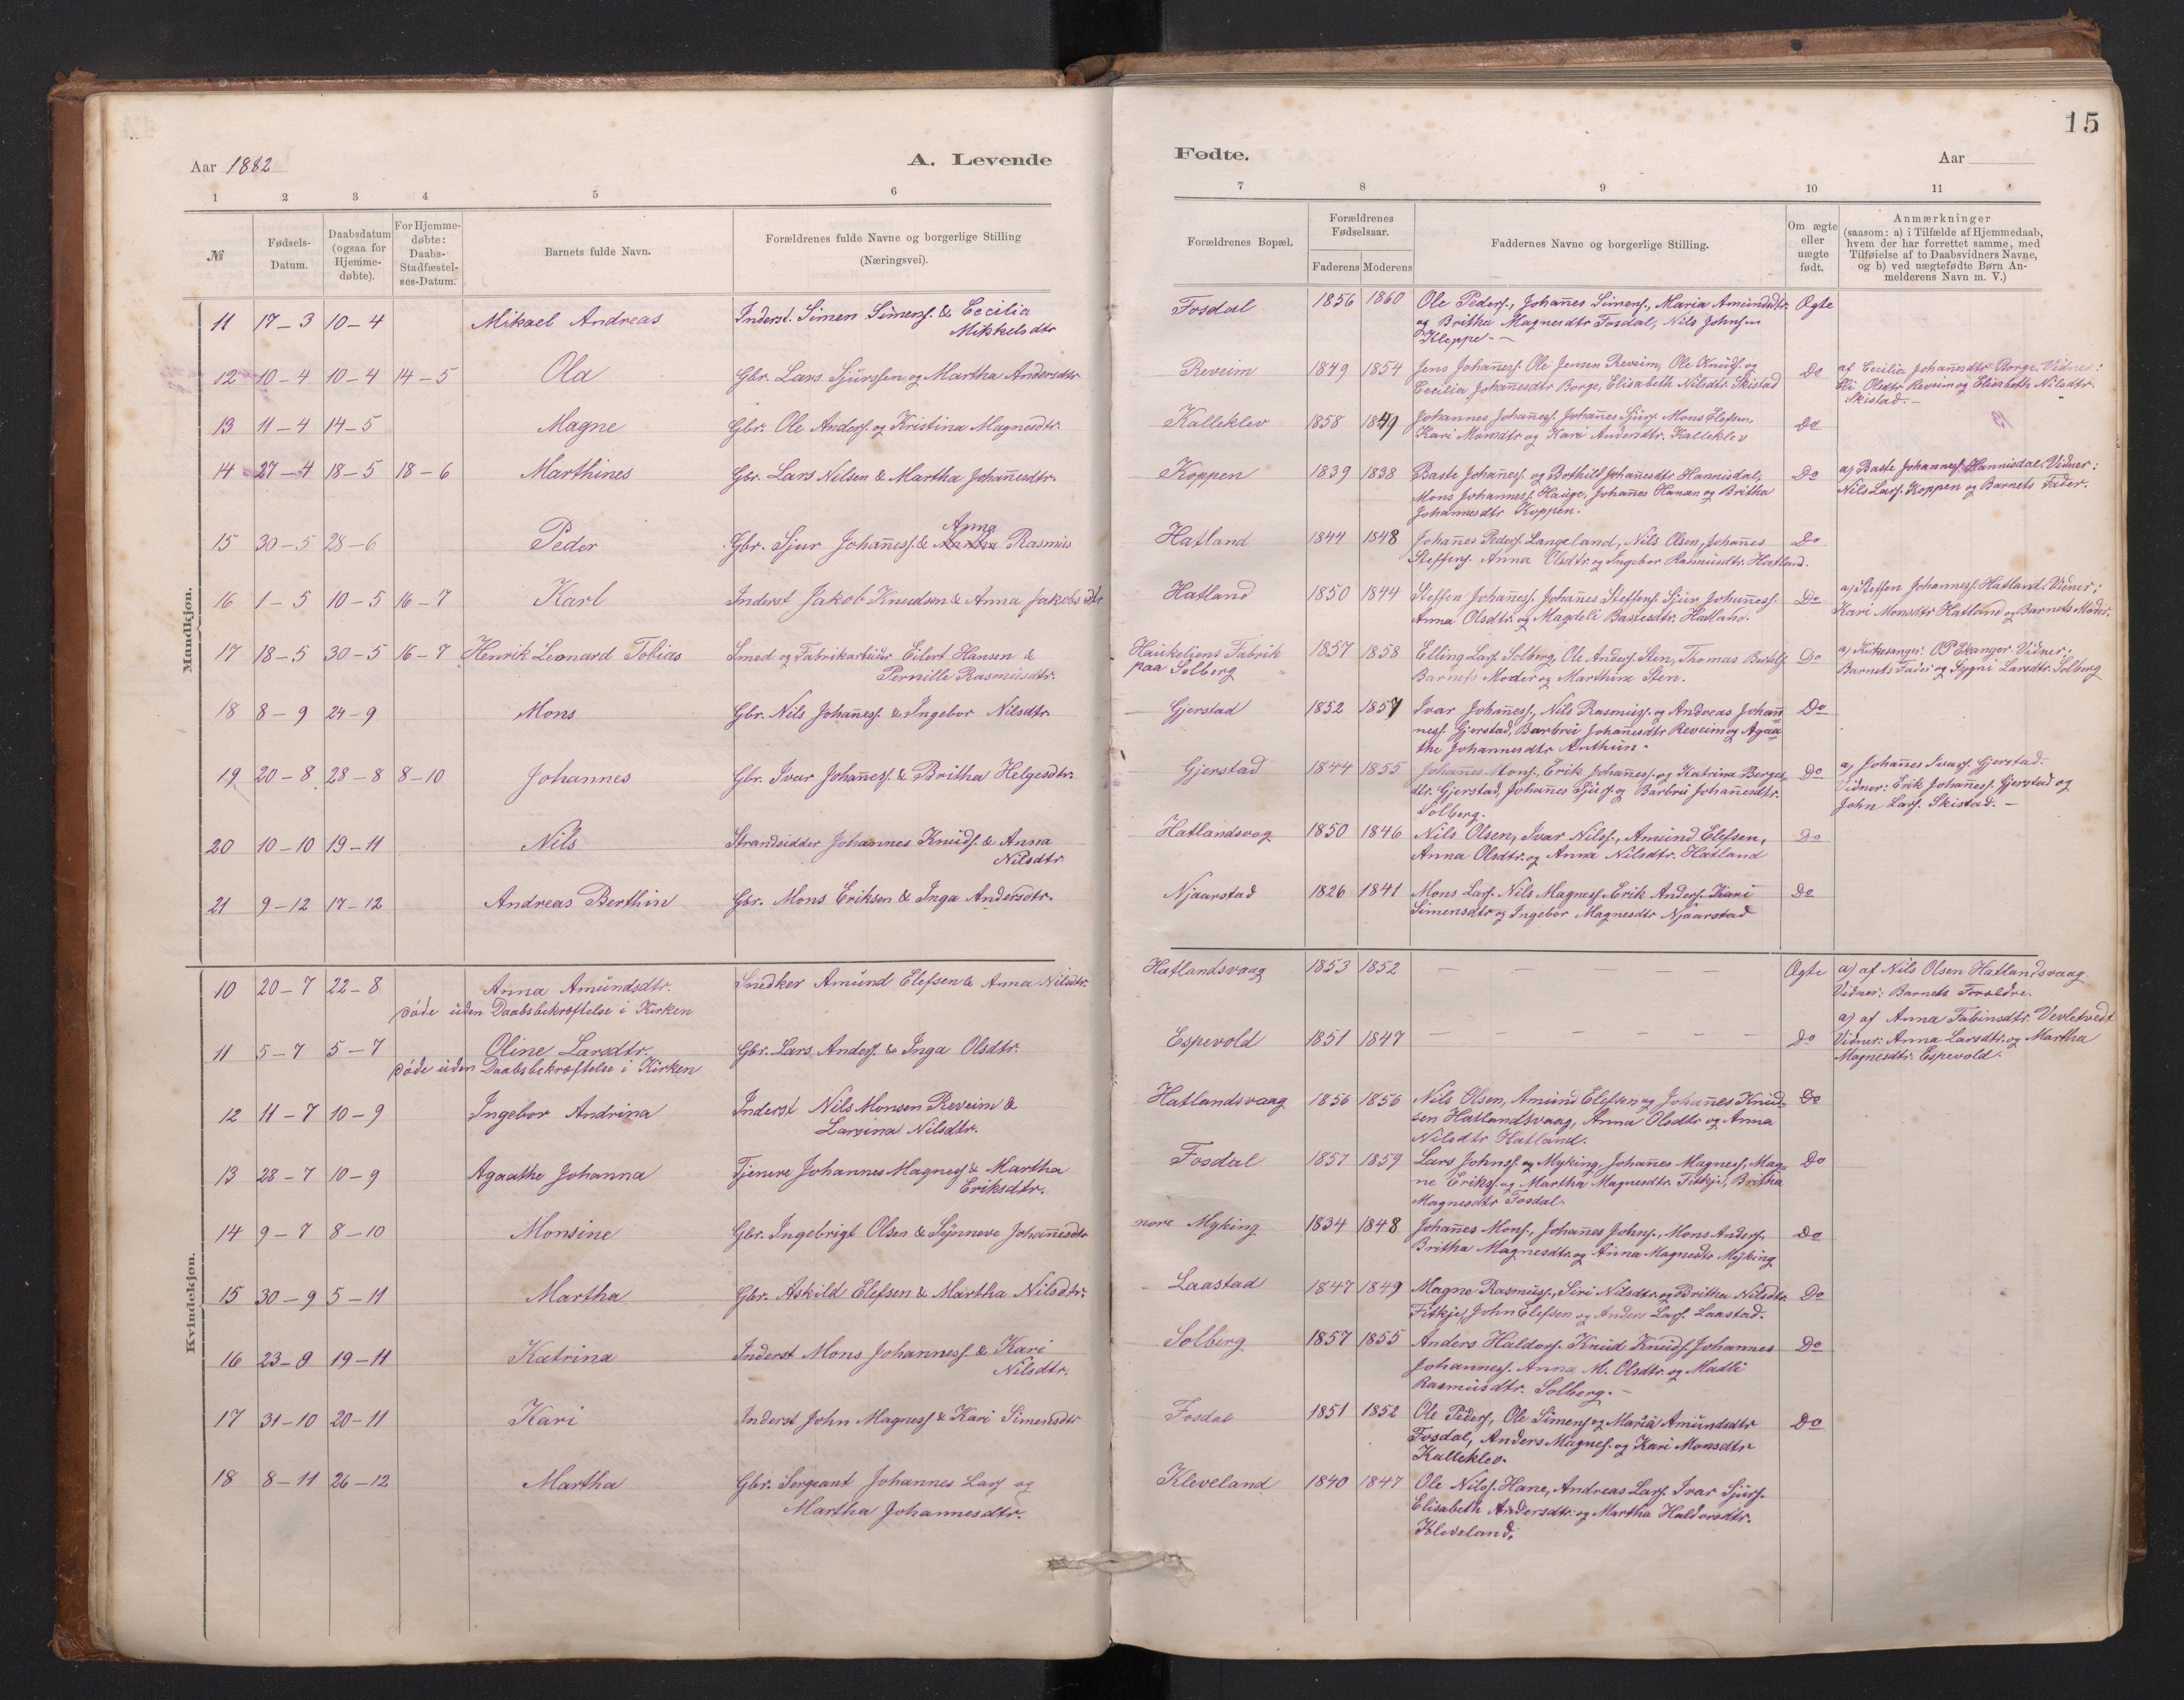 15
Aar 1882
A. Levende
Fødte.
Aar
1 2 3 4 5 6 7 8 9 10 11
№
Fødsels-
Datum.
Daabsdatum
(ogsaa for
Hjemme-
døbte).
For Hjemme-
døbte:
Daabs-
Stadfæstel-
ses-Datum.
Barnets fulde Navn.
Forældrenes fulde Navne og borgerlige Stilling
(Næringsvei).
Forældrenes Bopæl.
Forældrenes
Fødselsaar.
Faderens Moderens
Faddernes Navne og borgerlige Stilling.
Om ægte
eller
uægte
født.
Anmærkninger
(saasom: a) i Tilfælde af Hjemmedaab,
hvem der har forrettet samme, med
Tilføielse af to Daabsvidners Navne,
og b) ved uægtefødte Børn An-
melderens Navn m. V.)
Mandkjøn.
11 17-3 10-4 Mikael Andreas Inderst. Simen Simens. & Cecilia
Mikkelsdtr
Fosdal 1856 1860 Ole Peders., Johañes Simens., Maria Amundsdtr. Ægte
og Britha Magnesdtr Fosdal, Nils Johnsen
Kleppe.-
12 10-4 10-4 14-5 Ola Gbr. Lars Sjurssen og Martha Andersdtr
Reveim 1849 1854 Jens Johañess. Ole Jensen Reveim, Ole Knuds. og Do
Cecilia Johañesdtr Borge, Elisabeth Nilsdtr. Skistad
af Cecilia Johañesdtr Borge. Vidner:
Eli Olsdtr Reveim og Elisabeth Nilsdtr.
Skistad.-
13 11-4 14-5 Magne Gbr. Ole Anders. og Kristina Magnesdtr
Kalleklev 1858 1849 Johannes Johañess. Johañes Sjurs. Mons Elefsen, Do
Kari Monsdtr og Kari Andersdtr. Kalleklev
14 27-4 18-5 18-6 Marthines Gbr. Lars Nilsen & Martha Johañesdtr.
Koppen 1839 1838 Baste Johañess. og Bothild Johañesdtr Hannisdal, Do
Mons Johanness. Hauge, Johañes Hansen og Britha
Johannesdtr Koppen.
a) Baste Johanness. Hannisdal. Vidner:
Nils Lars. Koppen og Barnets Fader.
15 30-5 28-6 Peder Gbr. Sjur Johañess. & Anna Rasmus
Hatland 1844 1848 Johañes Peders. Langeland, Nils Olsen, Johañes Do
Steffens. Anna Olsdtr. og Ingebor Rasmusdtr. Hatland.
16 1-5 10-5 16-7 Karl Inderst Jakob Knudsen & Anna Jakobsdtr
Hatland 1850 1844 Steffen Johañess. Johañes Steffens. Sjur Johañess. Do
Anna Olsdtr. og Magdeli Bastesdtr. Hatland.
a) Steffen Johanness. Hatland. Vidner:
Kari Monsdtr Hatland og Barnets Moder.
17 18-5 30-5 16-7 Henrik Leonard Tobias Smed og Fabrikarbeider Eilert Hansen &
Pernille Rasmusdtr.
Haukeliens Fabrik
paa Solberg
1857 1858 Elling Lars. Solberg, Ole Anders. Sten, Thomas Bertels. Do
Barnets Moder og Marthine Sten.
a) Kirkesanger OP Ekanger. Vidner:
Barnets Fader og Sygni Larsdtr. Solberg
18 8-9 24-9 Mons Gbr. Nils Johañess. & Ingebor Nilsdtr.
Gjerstad 1852 1857 Ivar Johañess., Nils Rasmuss. og Andreas Johan Do
ness. Gjerstad, Barbru Johañesdtr Reveim og Agaa
the Johannesdtr Anthun.
19 20-8 28-8 8-10 Johannes Gbr. Ivar Johañess. & Britha Helgesdtr.
Gjerstad 1844 1855 Johañes Mons., Erik Johañess. og Katrina Berges- Do
dtr. Gjerstad, Johañes Sjurs. og Barbru Johañesdtr.
Solberg.
a) Johañes Ivars. Gjerstad.
Vidner: Erik Johañess. Gjerstad og
John Lars. Skistad.-
20 10-10 19-11 Nils Strandsidder Johannes Knuds. & Anna
Nilsdtr
Hatlandsvog 1850 1846 Nils Olsen, Ivar Nilss., Amund Elefsen, Do
Anna Olsdtr. og Anna Nilsdtr. Hatland
21 9-12 17-12 Andreas Berthin Gbr. Mons Eriksen & Inga Andersdtr.
Njaarstad 1826 1841 Mons Lars. Nils Magness. Erik Anders. Kari Do
Simensdtr og Ingebor Magnesdtr Njaarstad
Kvindekjøn.
10 20-7 22-8 Anna Amundsdtr. Snedker Amund Elefsen & Anna Nilsdtr.
døde uden Daabsbekræftelse i Kirken
Hatlandsvaag 1853 1852 — — — — Ægte a) af Nils Olsen Hatlandsvaag.
Vidner: Barnets Forældre.
11 5-7 5-7 Oline Larsdtr. Gbr. Lars Anders. & Inga Olsdtr.
døde uden Daabsbekræftelse i Kirken
Espevold 1851 1847 — — — — — — Do
a) af Anna Fabinsdtr. Vevletvedt
Vidner: Anna Larsdtr. og Martha
Magnesdtr. Espevold.
12 11-7 10-9 Ingebor Andrina Inderst Nils Monsen Reveim &
Larsina Nilsdtr.
Hatlandsvaag 1856 1856 Nils Olsen, Amund Elefsen og Johañes Knud- Do
sen Hatlandsvaag, Anna Olsdtr og Anna
Nilsdtr Hatland.
13 28-7 10-9 Agaathe Johanna Tjenere Johannes Magness & Martha
Eriksdtr.
Fosdal 1857 1859 Lars Johnss. og Myking, Johañes Magness, Mag- Do
ne Eriks. og Martha Magnesdtr. Fitkje, Britha
Magnesdtr Fosdal.
14 9-7 8-10 Monsine Gbr. Ingebrigt Olsen & Synneve Johañesdtr
nore Myking 1834 1848 Johañes Mons., Johañes Johns., Mons Anders. Do
Britha Magnesdtr. og Anna Magnesdtr Myking
15 30-9 5-11 Martha Gbr. Askild Elefsen & Martha Nilsdtr.
Laastad 1847 1849 Magne Rasmuss., Siri Nilsdtr. og Britha Nilsdtr. Do
Fitkje, John Elefsen og Anders Lars. Laastad.
16 23-9 19-11 Katrina Inderst Mons Johanness. & Kari
Nilsdtr.
Solberg 1857 1855 Anders Haldors. Knud Knuds. Johannes Do
Johanness. Anna M. Olsdtr. og Madli
Rasmusdtr. Solberg.-
17 31-10 20-11 Kari Inderst John Magness & Kari Simensdtr
Fosdal 1851 1852 Ole Peders, Ole Simens og Maria Amundsdtr Do
Fosdal, Anders Magnes. og Kari Monsdtr
Kalleklev.
18 8-11 26-12 Martha Gbr. Sergeant Johannes Lars og
Martha Johannesdtr.
Kleveland 1840 1847 Ole Nilss. Hane, Andreas Lars. Ivar Sjurs.
Elisabeth Andersdtr. og Martha Haldorsdtr.
Kleveland.